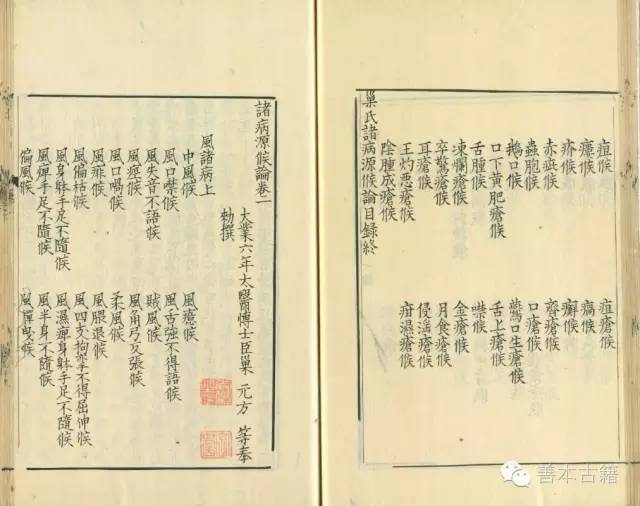 疽候 疽瘡候
癭候 瘑候
疥候 癬候
赤疵候 臍瘡候
蟲胞候 口瘡候
鵝口候 鷰口生瘡候
口下黄肥瘡候 舌上瘡候
舌腫候 噤候
凍爛瘡候 金瘡候
卒驚瘡候 月食瘡候
耳瘡候 侵淫瘡候
王灼惡瘡候 疳濕瘡候
陰腫成瘡候
巢氏諸病源候論目錄終
諸病源候論卷一
大業六年太醫博士臣巢 元方 等奉
勑撰
風諸病上
中風候 風癔候
風口噤候 風舌強不得語候
風失音不語候 賊風候
風痙候 風角弓反張候
風口喎候 柔風候
風痱候 風腲退候
風偏枯候 風四支拘攣不得屈伸候
風身躰手足不隨候 風濕痺身躰手足不隨候
風痺手足不隨候 風半身不隨候
偏風候 風嚲曳候
善本古籍